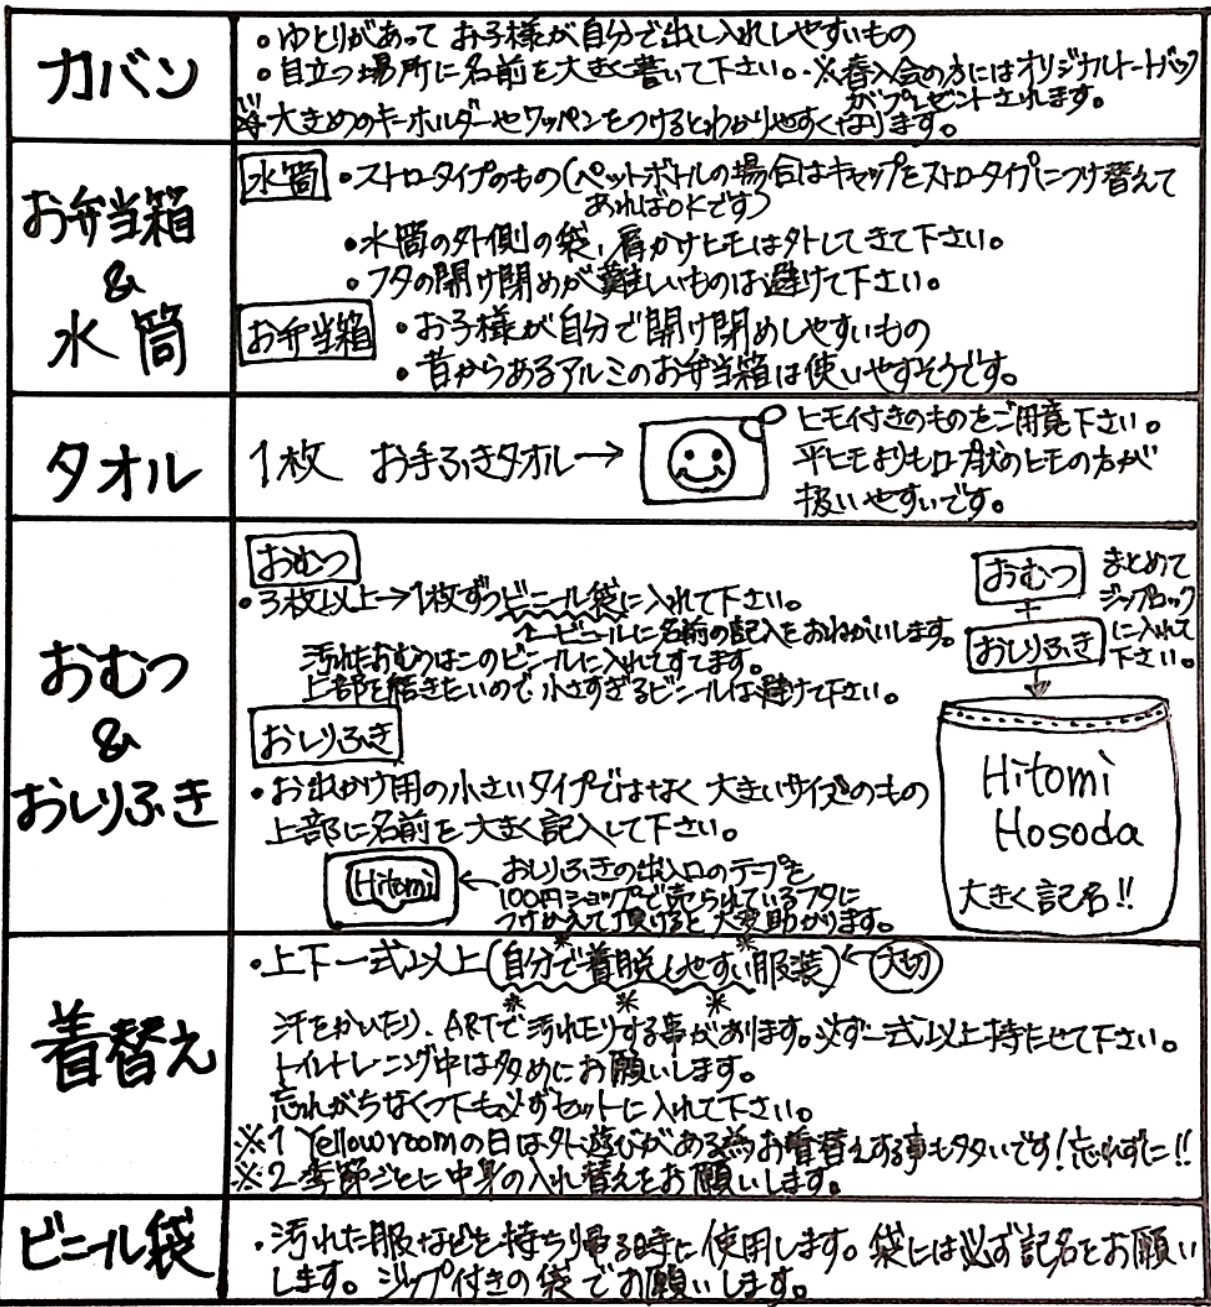 カバン
・ゆとりがあって お子様が自分で出し入れしやすいもの
・目立つ場所に名前を大きく書いて下さい。※春入会の方にはオリジナルトートバック
がプレゼントされます。
※大きめのキーホルダーやワッペンをつけるとわかりやすくなります。
お弁当箱
&
水筒
水筒 ・ストロータイプのもの(ペットボトルの場合はキャップをストロータイプにつけ替えて
あればOKです)
・水筒の外側の袋、肩かけヒモは外してきて下さい。
・フタの開け閉めが難しいものは避けて下さい。
お弁当箱 ・お子様が自分で開け閉めしやすいもの
・昔からあるアルミのお弁当箱は使いやすそうです。
タオル
1枚 お手ふきタオル→
ヒモ付きのものをご用意下さい。
平ヒモよりも ロープ状のヒモの方が
扱いやすいです。
おむつ
&
おしりふき
おむつ
・3枚以上→1枚ずつビニール袋に入れて下さい。
←ビニールに名前の記入をおねがいします。
汚れたおむつはこのビニールに入れてすてます。
上部を結きたいので小さすぎるビニールは避けて下さい。
おしりふき
・お出かけ用の小さいタイプではなく 大きいサイズのもの
上部に名前を大きく記入して下さい。
Hitomi
←おしりふきの出入口のテープを
100円ショップで売られているフタに
つけかえて頂けると大変助かります。
おむつ
+
おしりふき
まとめて
ジップロック
に入れて
下さい。
Hitomi
Hosoda
大きく記名!!
着替え
・上下一式以上(自分で着脱しやすい服装)←大切
汗をかいたり、ARTで汚れたりする事があります。必ず一式以上持たせて下さい。
トイレトレーニング中は多めにお願いします。
忘れがちなくつ下も必ずセットに入れて下さい。
※1 Yellow roomの日は外遊びがある為お着替えする事も多いです!忘れずに!!
※2 季節ごとに中身の入れ替えをお願いします。
ビニール袋
・汚れた服などを持ち帰る時に使用します。袋には必ず記名をお願い
します。ジップ付きの袋でお願いします。